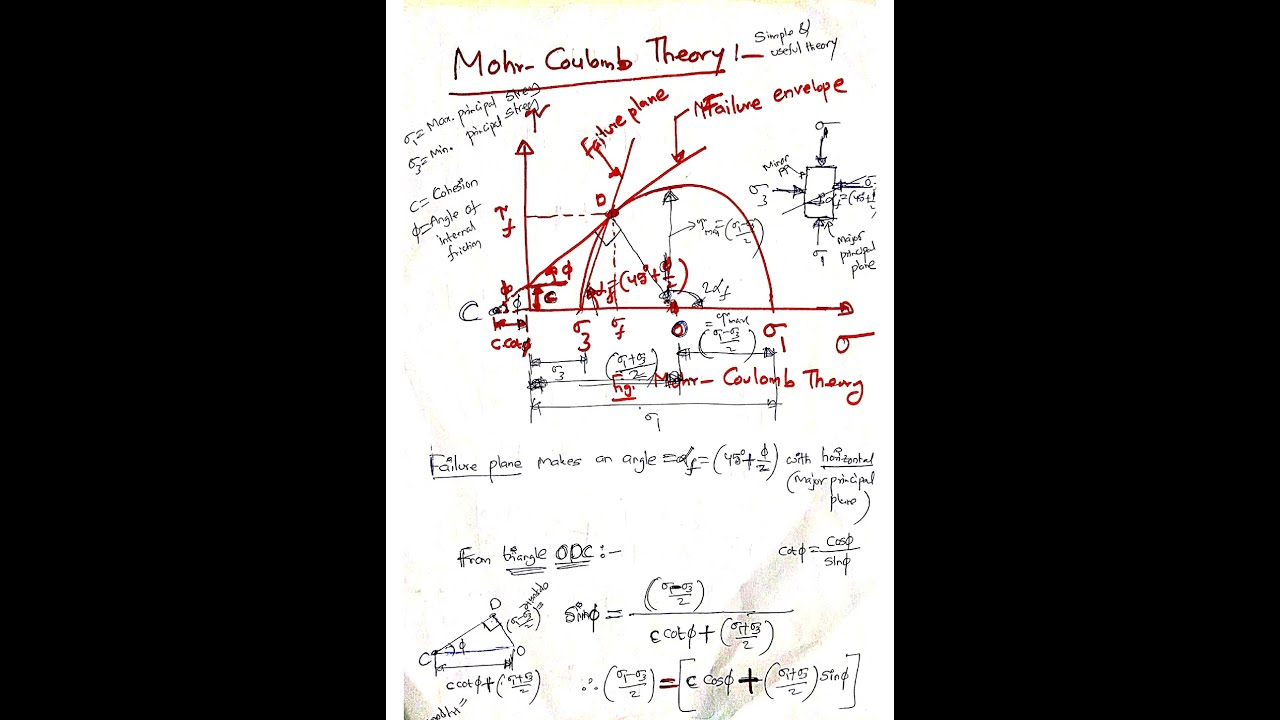 Mohr-Coulomb Theory :-
Simple &
useful theory
σ₁= Max. principal stress
σ₃= Min. principal stress
C = Cohesion
ϕ = Angle of
internal
friction
τ
Failure plane
Failure envelope
D
τ_f
ϕ
C
C
ϕ
c.cotϕ
α_f=(45°+ϕ/2)
τ_max=((σ₁-σ₃)/2)
2α_f
σ₃
σ_f
O
=τ_max
((σ₁-σ₃)/2)
σ₁
σ
σ₃
((σ₁+σ₃)/2)
σ₁
Fig. Mohr-Coulomb Theory
σ₁
Minor
σ₃
α_f=(45+ϕ/2)
σ₁
Major
principal
plane
Failure plane makes an angle =α_f=(45°+ϕ/2) with horizontal
(Major principal
plane)
From triangle ODC :-
cotϕ = cosϕ/sinϕ
sinϕ = ((σ₁-σ₃)/2) / (c cotϕ + ((σ₁+σ₃)/2))
D
((σ₁-σ₃)/2)=
C
ϕ
O
c cotϕ + ((σ₁+σ₃)/2)
∴ ((σ₁-σ₃)/2) = [c cosϕ + ((σ₁+σ₃)/2) sinϕ]